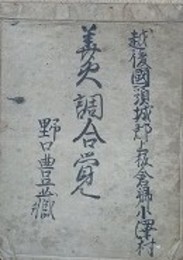 越後國頸城郡上板倉郷小澤村
美火調合覚
野口豊藏